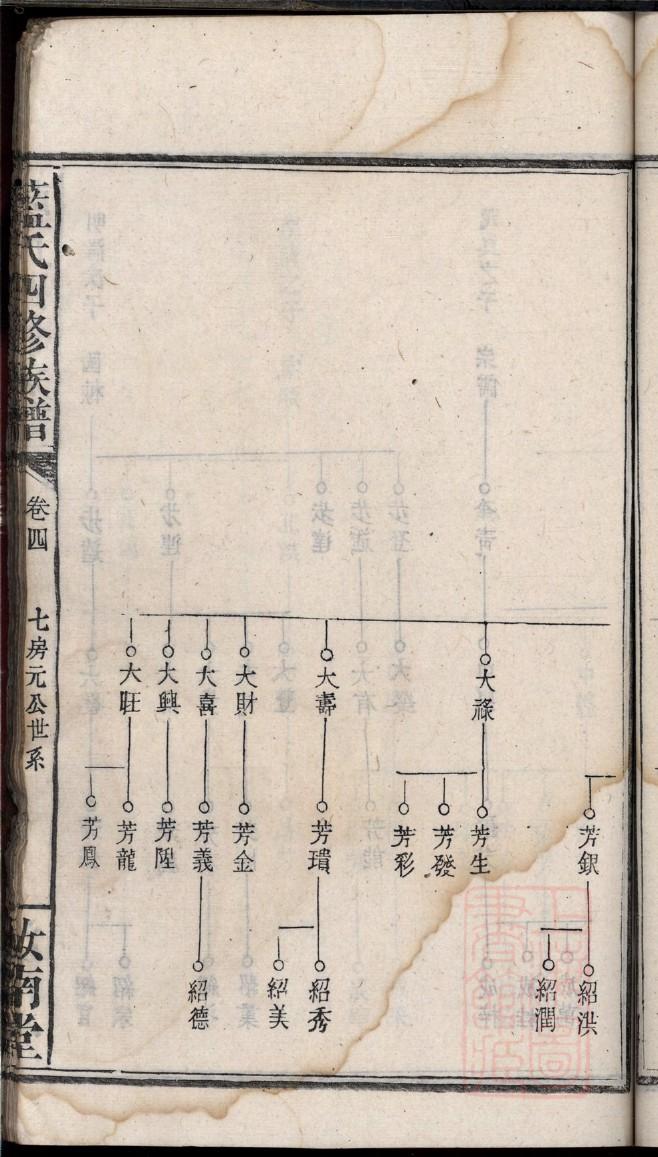 大祿
大壽
大財
大喜
大興
大旺
芳銀
芳生
芳發
芳彩
芳璝
芳金
芳義
芳陞
芳龍
芳鳳
紹洪
紹潤
紹秀
紹美
紹德
藍氏四修族譜
卷四
七房元公世系
汝南堂